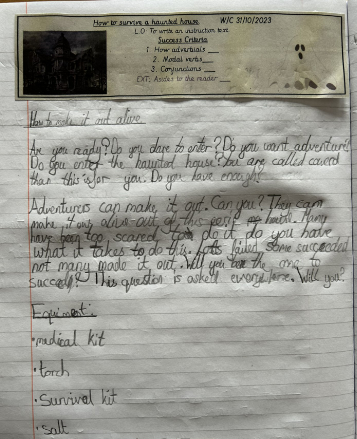 How to survive a haunted house W/C 31/10/2023
L.O To write an instruction text.
Success Criteria
1. How adverbials
2. Modal verbs
3. Conjunctions
EXT: Asides to the reader
How to make it out alive
Are you ready? Do you dare to enter? Do you want adventure?
Do you enter the haunted house? but are called coverd
than this is for you. Do you have enough?
Adventurers can make it out. Can you? They can
make it out alive out of this hotel. Many
have been too scared to do it do you have
what it takes to do this. failed some succeeded
not many made it out. Will you be the one to
succeed? This question is asked everytime. Will you?
Equiment:
•medical kit
•torch
•Survival kit
•salt